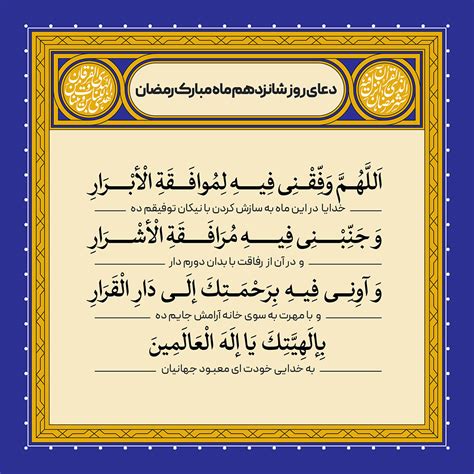 دعای روز شانزدهم ماه مبارک رمضان
اَللَّهُمَّ وَفِّقْنِی فِیهِ لِمُوافَقَةِ الْأَبْرَارِ
خدایا در این ماه به سازش کردن با نیکان توفیقم ده
وَ جَنِّبْنِی فِیهِ مُرَافَقَةِ الْأَشْرَارِ
و در آن از رفاقت با بدان دورم دار
وَ آوِنِی فِیهِ بِرَحْمَتِكَ إلَی دَارِ الْقَرَارِ
و با مهرت به سوی خانه آرامش جایم ده
بِإلَهِیَّتِكَ یَا إلَهَ الْعَالَمِینَ
به خدایی خودت ای معبود جهانیان